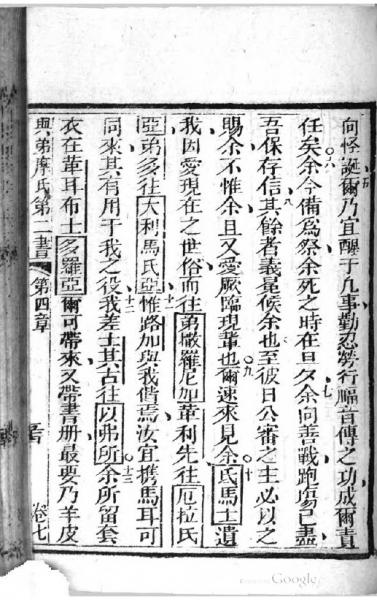 向怪誕五爾乃宜醒于凡事勤忍勞行福音傳之功成爾責
任矣六余今備為祭余死之時在旦夕七余向善戰跑場已盡
吾保存信八其餘者義冕候余也至彼日公審之主必以之
賜余不惟余且又愛厥臨現輩也九爾速來見余十氏馬士遺
我因愛現在之世俗而往弟撒羅尼加革利先往厄拉氏
亞弟多往大利馬氏亞十一惟路加與我偕焉汝宜攜馬耳可
同來其有用于我之役十二我差士其古往以弗所十三余所留套
衣在革耳布士多羅亞爾可帶來又帶書册最要乃羊皮
與弟摩氏第二書 第四章 卷七
Google